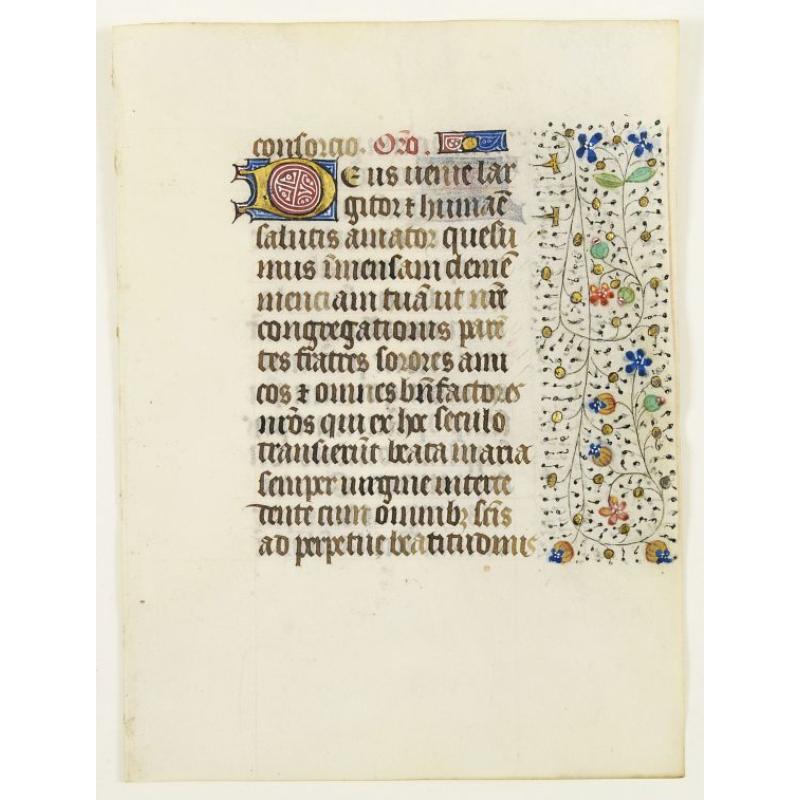 consorcio. Oro.
Deus venie lar
gitor et humane
salutis amator quesu
mus īmensam clemē
menciam tuā ut nr̄e
congregationis parē
tes fratres sorores ami
cos et omnes bn̄factores
nr̄os qui ex hoc seculo
transierūt beata maria
semper virgine interce
dente cum omnibꝫ sc̄is
ad perpetue beatitudinis